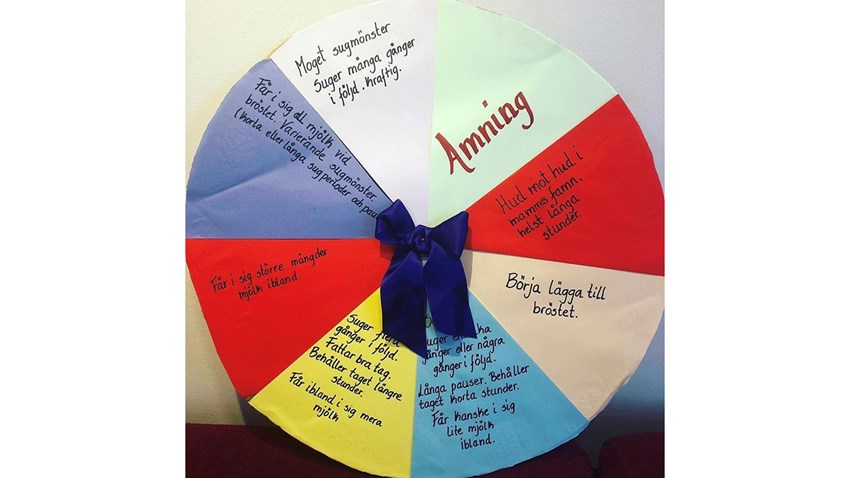 Amning
Hud mot hud i
mammas famn,
helst långa
stunder.
Börja lägga till
bröstet.
Suger
gånger eller några
gånger i följd.
Långa pauser. Behåller
taget korta stunder.
Får kanske i sig
lite mjölk
ibland.
Suger flera
gånger i följd.
Fattar bra tag.
Behåller taget längre
stunder.
Får ibland i sig mera
mjölk
Får i sig större mängder
mjölk ibland
Får i sig all mjölk vid
bröstet. Varierande sugmönster.
(korta eller långa sugperioder och
Moget sugmönster
Suger många gånger
i följd. Kraftig.